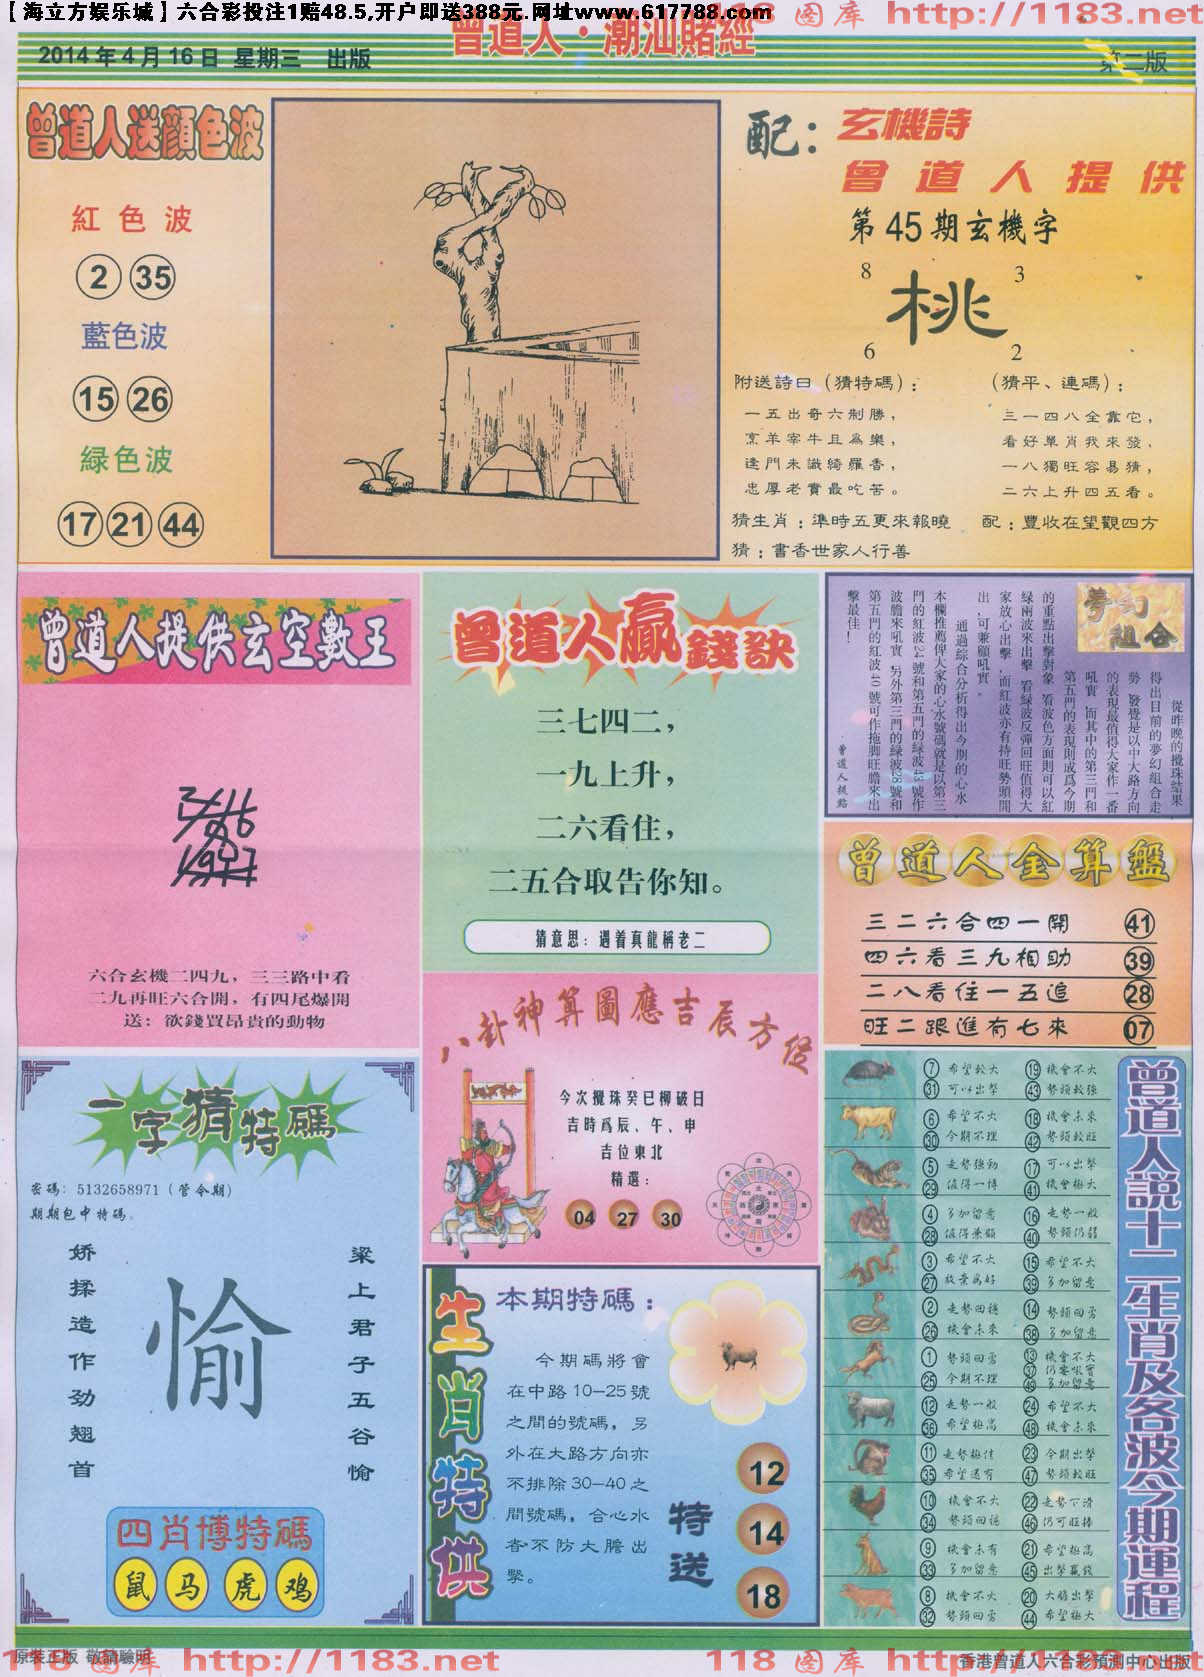 【海立方娱乐城】六合彩投注1赔48.5,开户即送388元.网址www.617788.com
图库 http://1183.net
曾道人·潮汕賭經
2014年4月16日 星期三 出版
第二版
曾道人送顔色波
紅色波
2 35
藍色波
15 26
緑色波
17 21 44
配：玄機詩
曾道人提供
第45期玄機字
8 3
桃
6 2
附送詩曰（猜特碼）：
一五出奇六制勝，
烹羊宰牛且爲樂，
逢門未識綺羅香，
忠厚老實最吃苦。
（猜平、連碼）：
三一四八全靠它，
看好單肖我來發，
一八獨旺容易猜，
二六上升四五看。
猜生肖：準時五更來報曉
配：豐收在望觀四方
猜：書香世家人行善
曾道人提供玄空數王
六合玄機二四九，三三路中看
二九再旺六合開，有四尾爆開
送：欲錢買昂貴的動物
曾道人贏錢訣
三七四二，
一九上升，
二六看住，
二五合取告你知。
猜意思：遇着真龍稱老二
夢幻組合
從昨晚的攪珠結果
得出目前的夢幻組合走
勢，發覺是以中大路方向
的表現最值得大家作一番
吼實，而其中的第三門和
第五門的表現則成爲今期
的重點出擊對象，看波色方面則可以紅
緑兩波來出擊，看緑波反彈回旺值得大
家放心出擊，而紅波亦有持旺勢頭開
出，可兼顧吼實。
通過綜合分析得出今期的心水
本欄推薦俾大家的心水號碼就是以第三
門的紅波24號和第五門的緑波43號作
波膽來吼實，另外第三門的緑波28號和
第五門的紅波40號可作拖脚旺膽來出
擊最佳！
曾道人提點
曾道人金算盤
三二六合四一開 41
四六看三九相助 39
二八看住一五追 28
旺二跟進有七來 07
八卦神算圖應吉辰方位
今次攪珠癸巳柳破日
吉時爲辰、午、申
吉位東北
精選：
04 27 30
一字猜特碼
密碼：5132658971（管令期）
期期包中特碼。
矫揉造作劲翘首
愉
梁上君子五谷愉
四肖博特碼
鼠 马 虎 鸡
生肖特供
本期特碼：
今期碼將會
在中路10—25號
之間的號碼，另
外在大路方向亦
不排除30—40之
間號碼，合心水
者不防大膽出
擊。
特送
12
14
18
曾道人説十二生肖及各波今期運程
7 希望較大 19 機會不大
31 可以出擊 43 勢頭較強
6 希望不大 18 機會未來
30 今期不理 42 勢頭較旺
5 走勢強勁 17 可以出擊
29 值得一博 41 機會極大
4 多加留意 16 走勢一般
28 值得兼顧 40 勢頭仍弱
3 希望不大 15 希望不大
27 放棄爲好 39 多加留意
2 走勢回穩 14 勢頭回勇
26 機會未來 38 多加留意
1 勢頭回勇 13 機會不大
37 仍要吼實
25 今期不理 49 多加留意
12 走勢一般 24 希望不大
36 希望極高 48 機會未來
11 走勢極佳 23 今期出擊
35 希望還有 47 勢頭較旺
10 機會不大 22 走勢下滑
34 勢頭回穩 46 仍可旺捧
9 機會未有 21 希望極高
33 多加留意 45 出擊贏錢
8 機會不大 20 大膽出擊
32 勢頭回勇 44 希望極大
原裝正版 敬請驗明
香港曾道人六合彩預測中心出版
http://1183.net 118 图库 http://1183.net 118 图库 http://1183.net